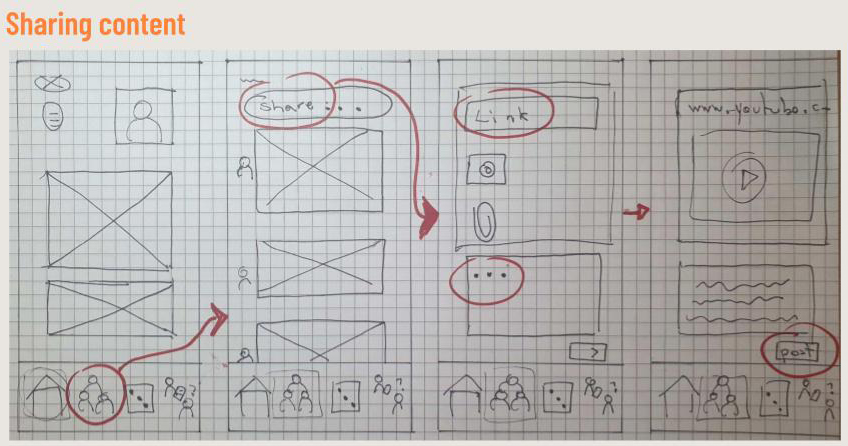 Sharing content
share...
Link
...
www.youtube.c
post